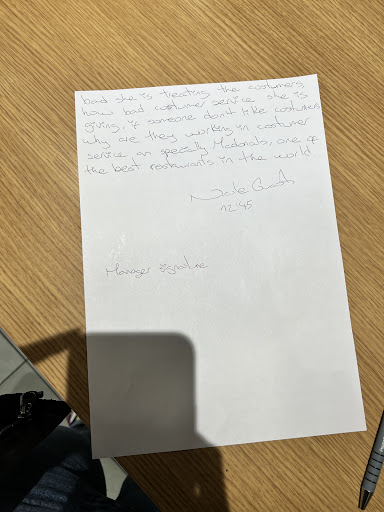 bad she is treating the costumers,
how bad costumer service she is
giving, if someone dont like costumers
why are they working in costumer
service an specially Macdonals, one of
the best restaurants in the world
12:45
Manager signature